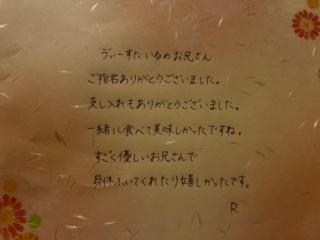 うぃーすたいるのお兄さん
ご指名ありがとうございました。
差し入れもありがとうございました。
一緒に食べて美味しかったですね。
すごく優しいお兄さんで
身体ふいてくれたり嬉しかったです。
R